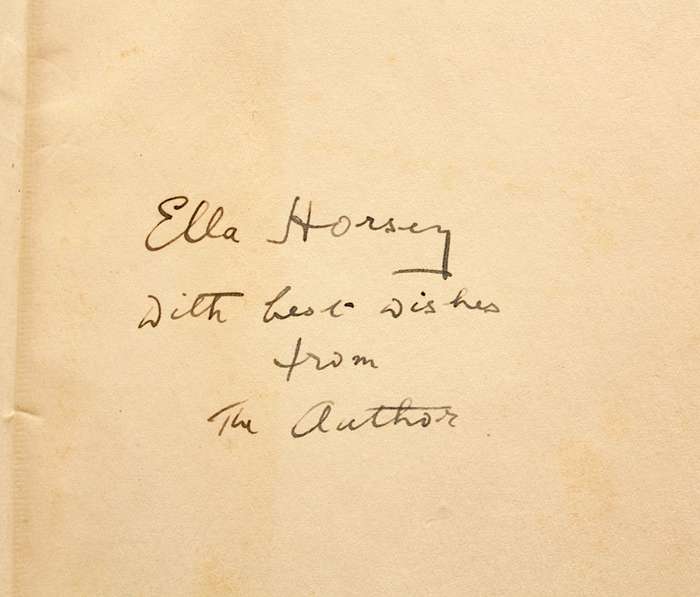 Ella Horsey
With best wishes
from
The Author.